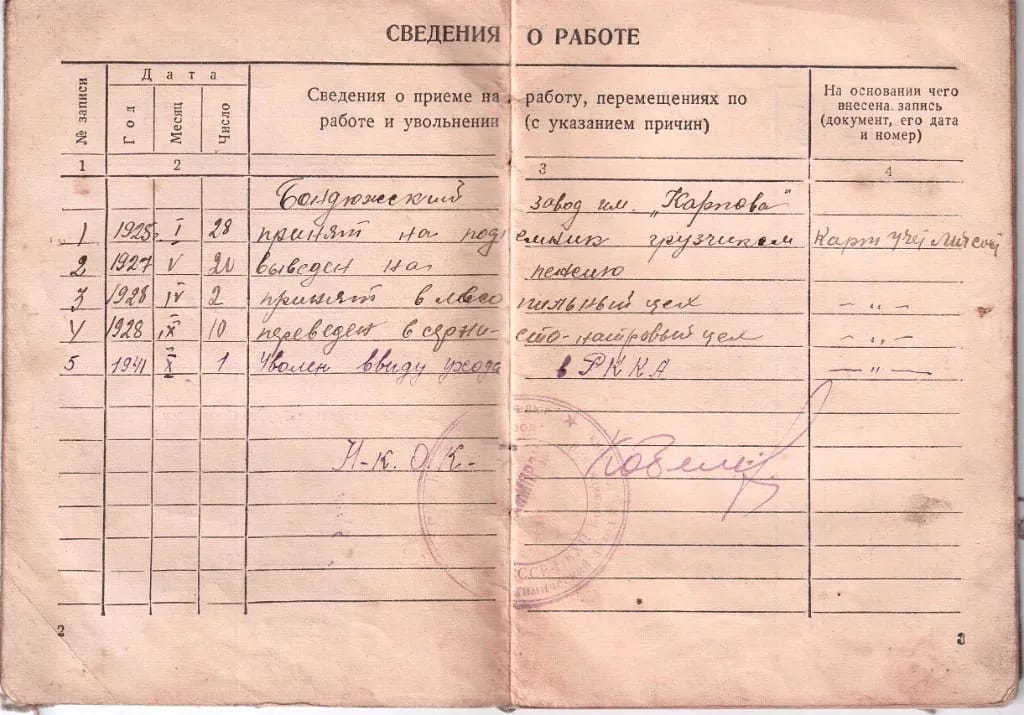 СВЕДЕНИЯ О РАБОТЕ
№ записи
Дата
Год
Месяц
Число
Сведения о приеме на работу, перемещениях по
работе и увольнении (с указанием причин)
На основании чего
внесена запись
(документ, его дата
и номер)
1 2 3 4
Бондюжский завод им. „Карпова"
1 1925г. I 28 принят на подъемник грузчиком Карт учёт личной
2 1927 V 20 выведен на
3 1928 IV 2 принят в лесопильный цех — „ —
4 1928 IX 10 переведен в сернисто-натровый цех — „ —
5 1941 X 1 Уволен ввиду ухода в РККА — „ —
Н-к. О.К.
2
3